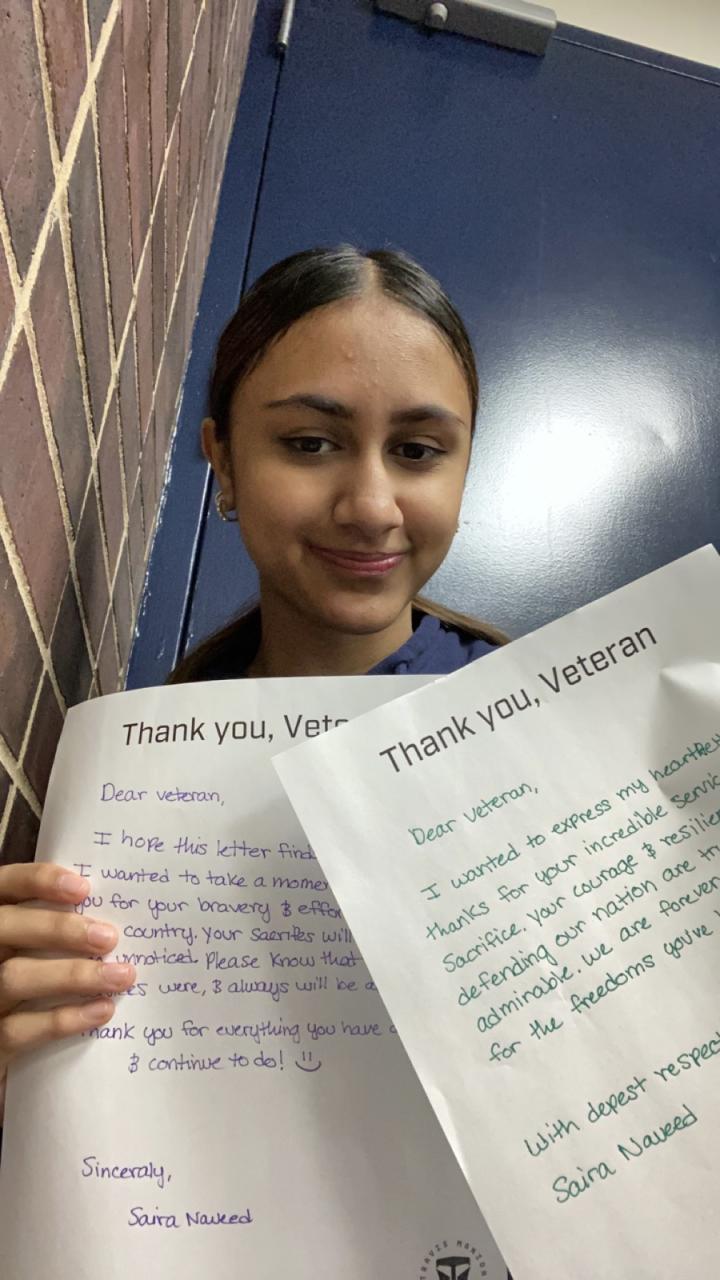 Thank you, Vete
Dear veteran,
I hope this letter find
I wanted to take a momen
you for your bravery & effor
country. your sacrifes will
unnoticed. Please know that
were, & always will be a
Thank you for everything you have
& continue to do!
Sinceraly,
Saira Naveed
TRAVIS MANION
Thank you, Veteran
Dear veteran,
I wanted to express my heartfelt
thanks for your incredible servic
Sacrifice. your courage & resilien
defending our nation are tr
admirable. we are forever
for the freedoms you've
With depest respect
Saira Naveed